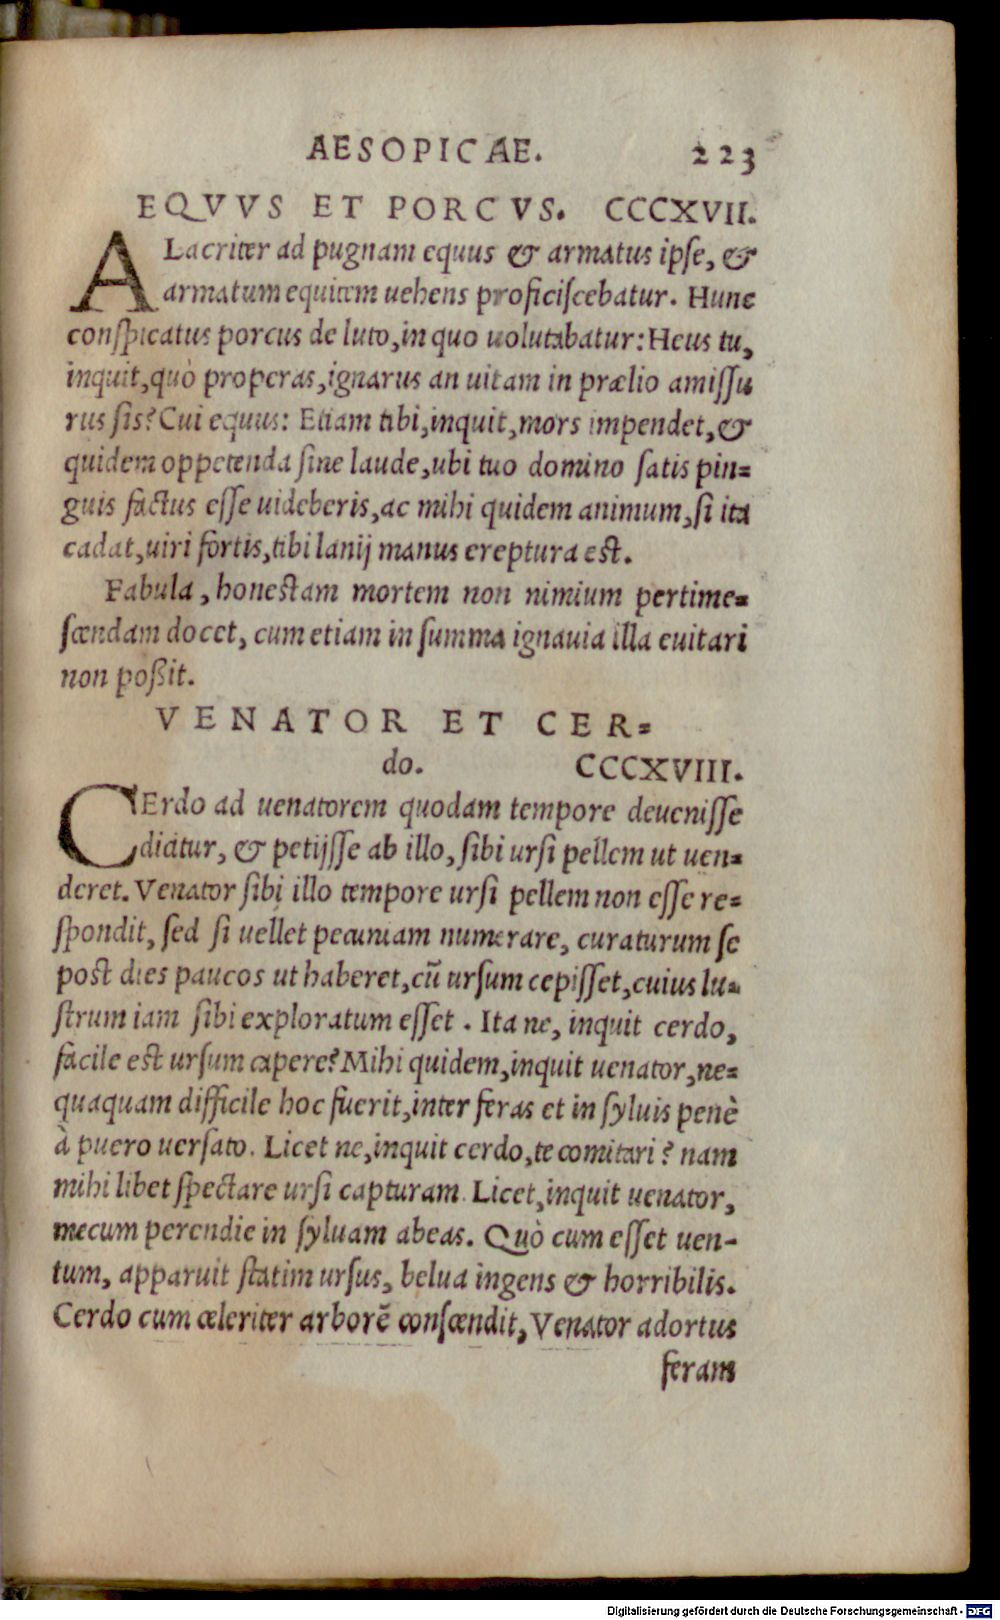 AESOPICAE. 223
EQVVS ET PORCVS. CCCXVII.
ALacriter ad pugnam equus & armatus ipſe, &
armatum equitem uehens proficiſcebatur. Hunc
conſpicatus porcus de luto, in quo uolutabatur: Heus tu,
inquit, quò properas, ignarus an uitam in prælio amiſſu
rus ſis? Cui equus: Etiam tibi, inquit, mors impendet, &
quidem oppetenda ſine laude, ubi tuo domino ſatis pin=
guis factus eſſe uideberis, ac mihi quidem animum, ſi ita
cadat, uiri fortis, tibi lanij manus ereptura eſt.
Fabula, honeſtam mortem non nimium pertime=
ſcendam docet, cum etiam in ſumma ignauia illa euitari
non poßit.
VENATOR ET CER=
do. CCCXVIII.
CErdo ad uenatorem quodam tempore deueniſſe
dicitur, & petijſſe ab illo, ſibi urſi pellem ut uen=
deret. Venator ſibi illo tempore urſi pellem non eſſe re=
ſpondit, ſed ſi uellet pecuniam numerare, curaturum ſe
poſt dies paucos ut haberet, cū urſum cepiſſet, cuius lu=
ſtrum iam ſibi exploratum eſſet. Ita ne, inquit cerdo,
facile eſt urſum capere? Mihi quidem, inquit uenator, ne=
quaquam difficile hoc fuerit, inter feras et in ſyluis penè
à puero uerſato. Licet ne, inquit cerdo, te comitari? nam
mihi libet ſpectare urſi capturam. Licet, inquit uenator,
mecum perendie in ſyluam abeas. Quò cum eſſet uen-
tum, apparuit ſtatim urſus, belua ingens & horribilis.
Cerdo cum celeriter arborē conſcendit, Venator adortus
feram
Digitalisierung gefördert durch die Deutsche Forschungsgemeinschaft - DFG